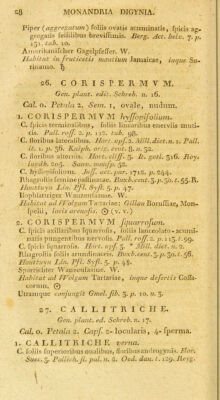 28 MONANDRIA DIGYNIA.
Piper (aggregatum) foliis ovatis acuminatis, spicis ag-
gregatis sessilibus brevissimis. Berg. Act. helv. 7. p.
131. tab. 10.
Amerikanischer Gagelpfeffer. W.
Habitat in fruticetis montium Jamaicae, inque Su-
rinamo. ♄
26. CORISPERMVM.
Gen. plant. edit. Schreb. n. 16.
Cal. 0. Petala 2. Sem. 1, ovale, nudum.
1. CORISPERMVM hyssopifolium.
C. spicis terminalibus, foliis linearibus enerviis muti-
cis. Pall. ross. 2. p. 112. tab. 98.
C. floribus lateralibus. Hort. ups. 2. Mill. dict. n. 1. Pall.
it. 1. p. 36. Kalph. orig. cent. 8. n. 32.
C. floribus alternis. Hort. cliff. 3. R. gott. 316. Roy.
lugdb. 205. Sauv. monsp. 52.
C. hyssopifolium. Juss. act. par. 1712. p. 244.
Rhagrostis semine palliaceo. Buxb. cent. 3. p. 30. t. 55. R.
Houttuyn Lin. Pfl. Syst. 5. p. 47.
Isopblättriger Wanzensaame. W.
Habitat ad Wolgam Tartariae; Gillau Borussiae, Mon-
spelii, locis arenosis. ☉ (v. v.)
2. CORISPERMVM squarrosum.
C. spicis axillaribus squarrosis, foliis lanceolato-acumi-
natis pungentibus nervosis. Pall. ross. 2. p. 113. t. 99.
C. spicis squarrosis. Hort. ups. 3. * Mill. dict. n. 2.
Rhagrostis foliis arundinaceis. Buxb. cent. 3. p. 30. t. 56.
Houttuyn Lin. Pfl. Syst. 5. p. 48.
Sparrichter Wanzensaame. W.
Habitat ad Wolgam Tartariae, inque desertis Cossa-
corum. ☉
Utramque conjungit Gmel. sib. 3. p. 10. n. 3.
27. CALLITRICHE.
Gen. plant. ed. Schreb. n. 17.
Cal. 0. Petala 2. Caps. 2-locularis, 4-sperma.
1. CALLITRICHE verna.
C. foliis superioribus ovalibus, floribus androgynis. Hoe.
Suec. 3. Pollich. it. pal. n. 2. Oed. dan. t. 129. Reyg.